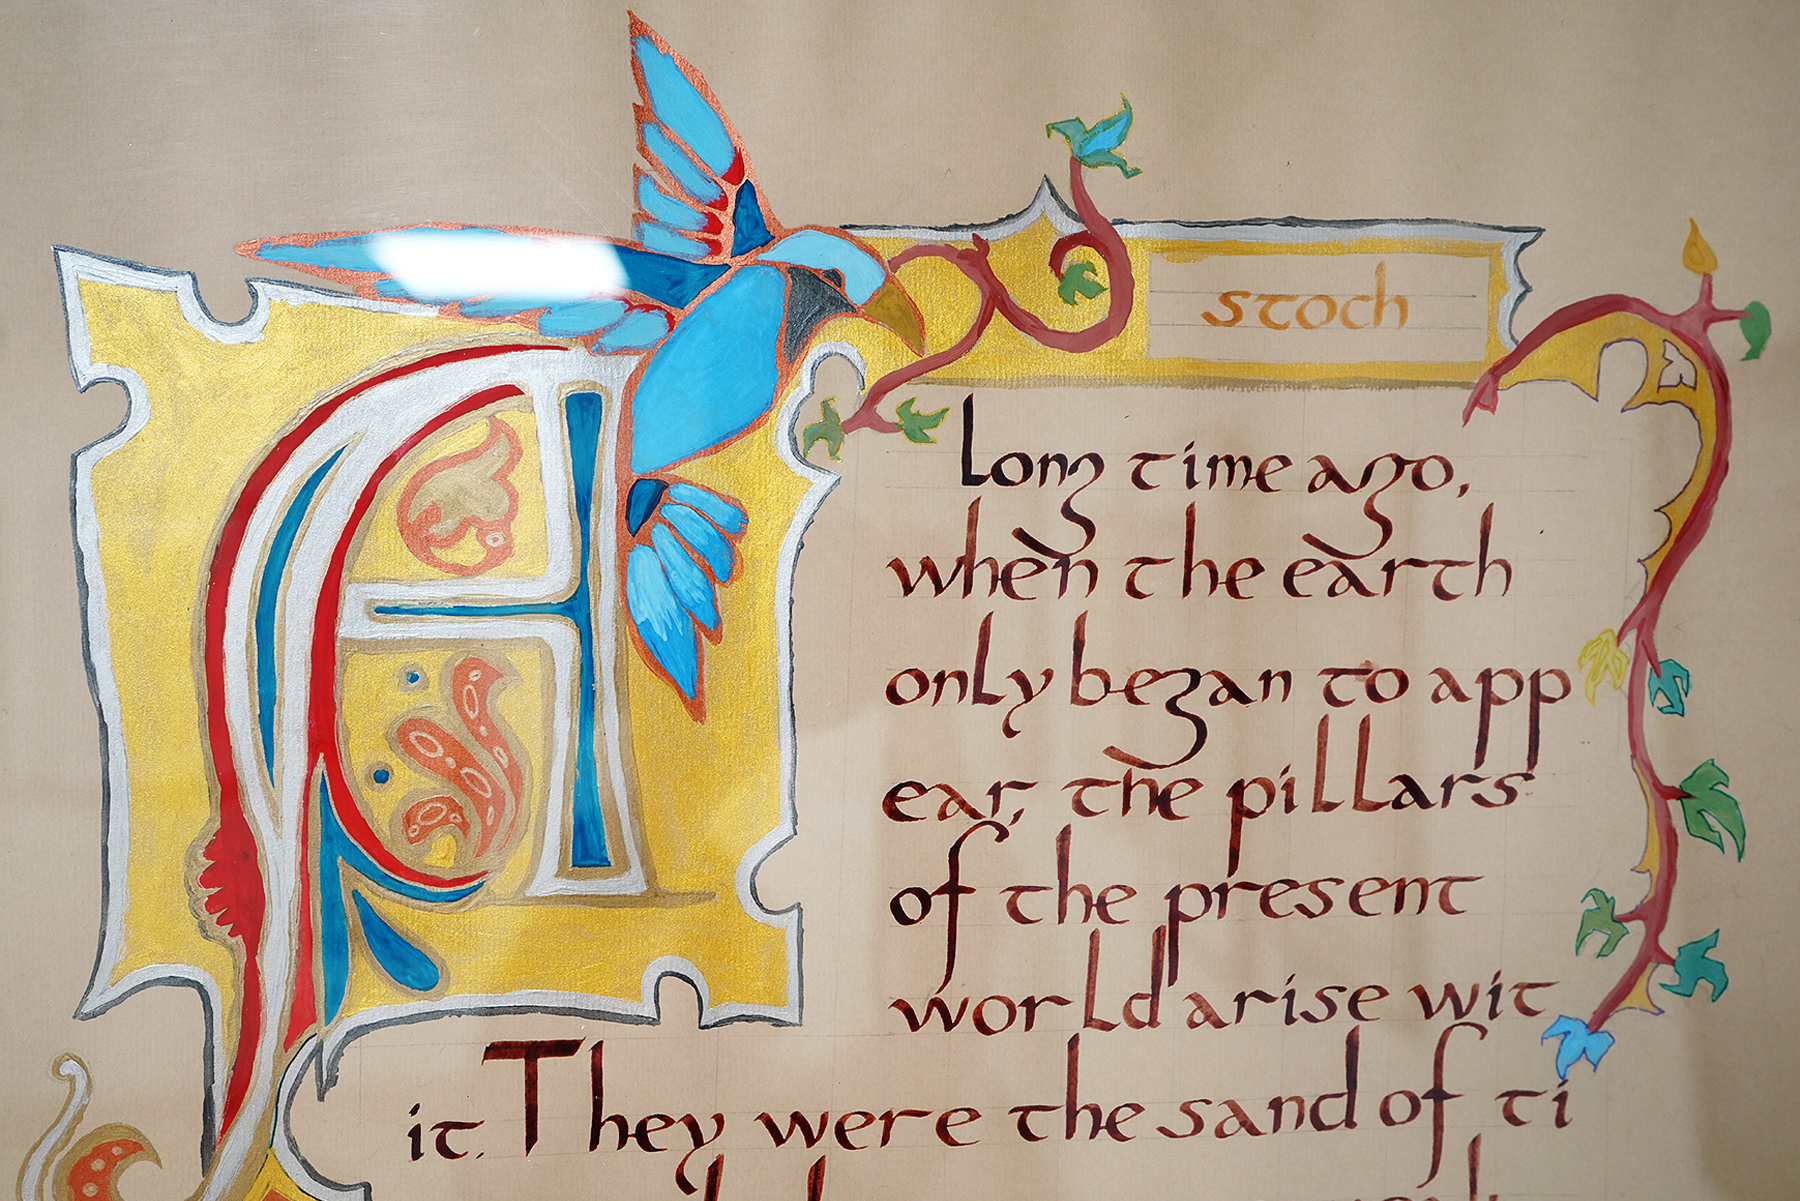 stoch
A
Long time ago,
when the earth
only began to app
ear, the pillars
of the present
world arise wit
it. They were the sand of ti